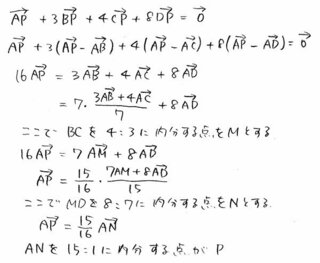 $\overrightarrow{AP} + 3\overrightarrow{BP} + 4\overrightarrow{CP} + 8\overrightarrow{DP} = \overrightarrow{0}$
$\overrightarrow{AP} + 3(\overrightarrow{AP} - \overrightarrow{AB}) + 4(\overrightarrow{AP} - \overrightarrow{AC}) + 8(\overrightarrow{AP} - \overrightarrow{AD}) = \overrightarrow{0}$
$16\overrightarrow{AP} = 3\overrightarrow{AB} + 4\overrightarrow{AC} + 8\overrightarrow{AD}$
$= 7 \cdot \frac{3\overrightarrow{AB} + 4\overrightarrow{AC}}{7} + 8\overrightarrow{AD}$
ここで BCを4:3に内分する点をMとする
$16\overrightarrow{AP} = 7\overrightarrow{AM} + 8\overrightarrow{AD}$
$\overrightarrow{AP} = \frac{15}{16} \cdot \frac{7\overrightarrow{AM} + 8\overrightarrow{AD}}{15}$
ここで MDを8:7に内分する点をNとする
$\overrightarrow{AP} = \frac{15}{16}\overrightarrow{AN}$
ANを15:1に内分する点がP